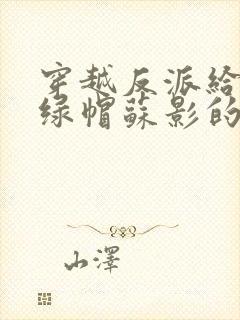 穿越反派給
綠帽蘇影的
山澤